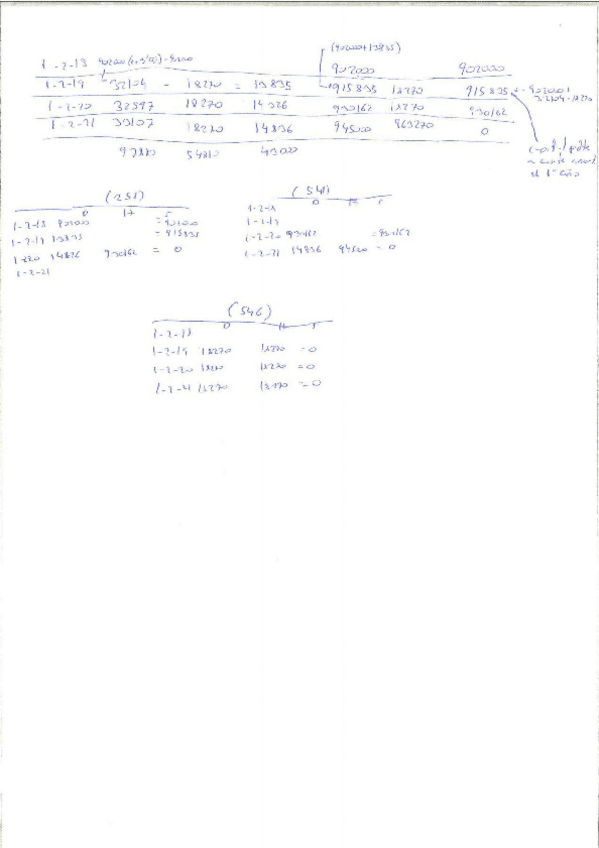 (902000+13835)
1-2-18 902000 902000
1-2-19 32104 - 18270 = 13835 915835 18270 915835
1-2-20 32597 18270 14326 930162 18270 930162
1-2-21 33107 18270 14836 945000 963270 0
97810 54810 43000
(251) (541)
D H D H
1-2-18 902000 = 902000
1-2-19 13835 = 915835
1-2-20 14326 930162 = 0
1-2-21
1-2-18
1-2-19
1-2-20 930162 = 930162
1-2-21 14836 945000 = 0
(546)
D H
1-2-18
1-2-19 18270 18270 = 0
1-2-20 18270 18270 = 0
1-2-21 18270 18270 = 0